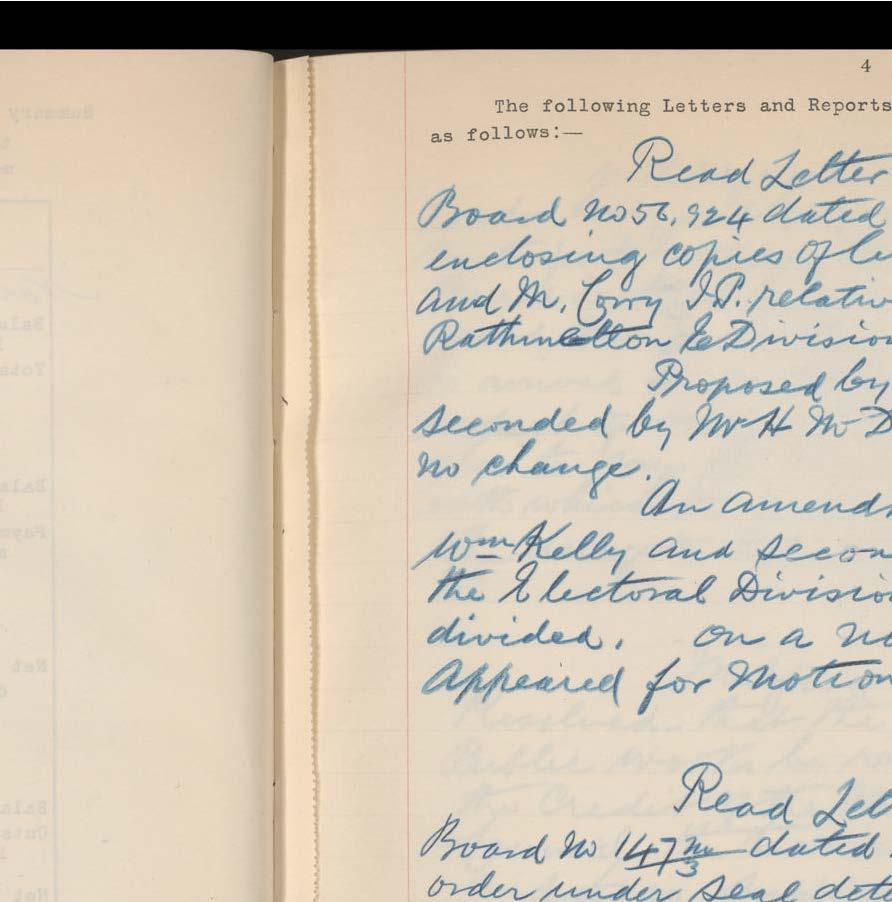 4
The following Letters and Reports
as follows:—
Read Letter
Board No 56,924 dated
enclosing copies of le
and Mr. Corry I.P. relativ
Rathmelton E Division
Proposed by
seconded by Mr H Mc D
no change.
An amendm
Wm Kelly and secon
the Electoral Division
divided. on a
Appeared for Motion
Read Let
Board No 147 dated
order under seal dete